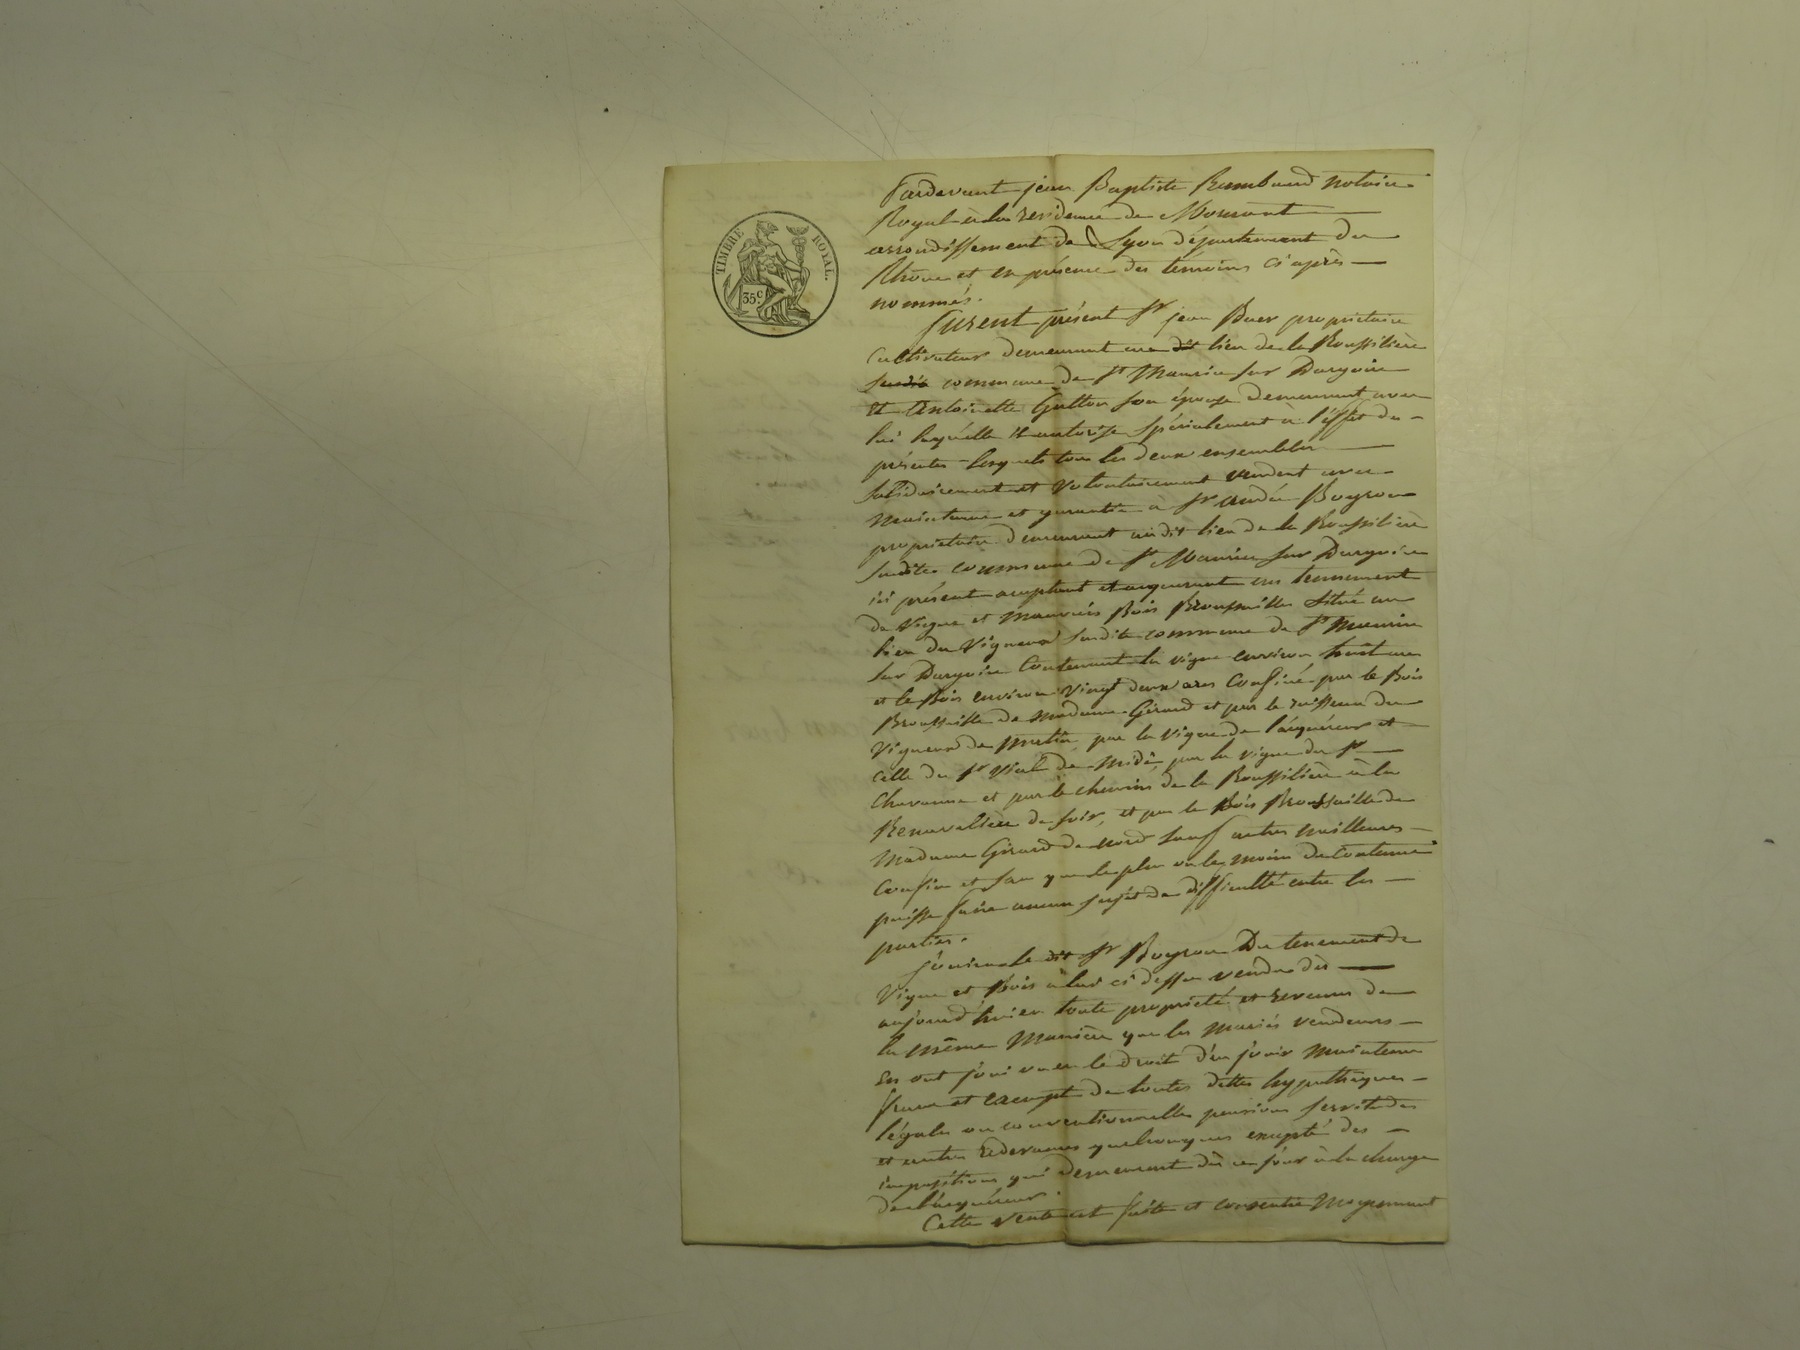 TIMBRE ROYAL.
35c
Pardevant jean Baptiste Rambaud notaire
Royal à la residence de Mornant
arrondissement de Lyon département du
Rhône et en présence des témoins ci après
nommés.
furent présent Sr jean Buer propriétaire
Cultivateur demeurant au dit lieu de la Roussilière
susdite commune de St Maurice sur Dargoire
et Antoinette Gutton son épouse demeurant avec
lui laquelle il autorise spécialement à l'effet des
présentes lesquels tous les deux ensembles
solidairement et volontairement vendent avec
maintenue et garantie à Sr andré Boyron
propriétaire demeurant au dit lieu de la Roussilière
susdite commune de St Maurice sur Dargoire
ici présent acceptant et acquerant un tennement
de Vigne et mauvais Bois Broussailles situé au
lieu du Vigneron susdite commune de St Maurice
sur Dargoire Contenant la vigne environ huit ares
et le Bois environ vingt deux ares Confiné par le Bois
Broussaille de madame Girard et par le ruisseau du
Vigneron de matin, par la vigne de l'acquéreur et
celle du Sr Vial de midi, par la vigne du Sr
Chavanne et par le chemin de la Roussilière à la
de soir, et par le Bois Broussaille de
Madame Girard de nord sauf autres meilleures
Confin et san que le plus ou le moins de contenue
puisse faire aucun sujet de difficulté entre les
parties.
jouira le dit Sr Boyron Du tenement de
Vigne et Bois à lui ci dessu vendu dès
aujourd'hui en toute propriété et revenu de
la même manière que les mariés vendeurs
en ont joui ou eu le droit d'en jouir maintenu
franc et exempt de toutes dettes hypothèques
légales ou conventionnelles pensions servitudes
et autres redevances quelconques excepté des
impositions qui demeurent dès ce jour à la charge
de l'acquéreur.
Cette vente est faite et consentie moyennant